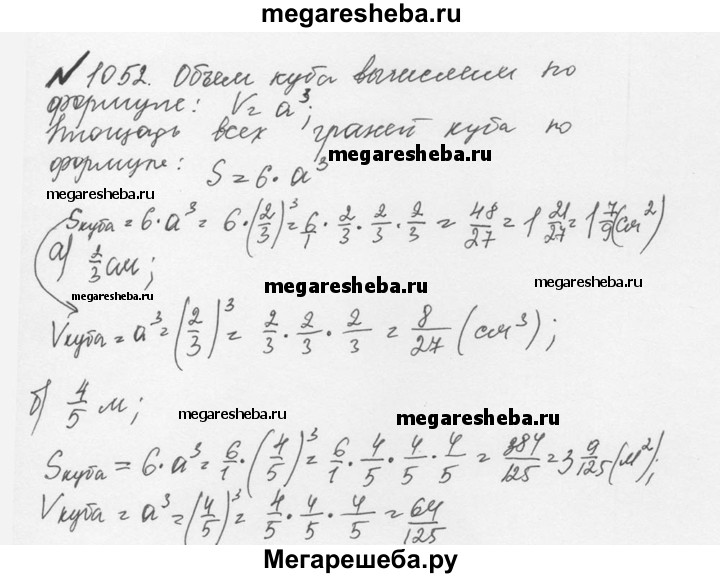 megaresheba.ru
№ 1052. Объем куба вычислим по
формуле: V = a³;
Площадь всех граней куба по
формуле: S = 6 · a³
megaresheba.ru
megaresheba.ru
Sкуба = 6 · a³ = 6 · (2/3)³ = 6/1 · 2/3 · 2/3 · 2/3 = 48/27 = 1 21/27 = 1 7/9 (см²)
а) 2/3 см;
megaresheba.ru
megaresheba.ru
megaresheba.ru
Vкуба = a³ = (2/3)³ = 2/3 · 2/3 · 2/3 = 8/27 (см³);
б) 4/5 м;
megaresheba.ru
megaresheba.ru
Sкуба = 6 · a³ = 6/1 · (4/5)³ = 6/1 · 4/5 · 4/5 · 4/5 = 384/125 = 3 9/125 (м²);
Vкуба = a³ = (4/5)³ = 4/5 · 4/5 · 4/5 = 64/125
Мегарешеба.ру